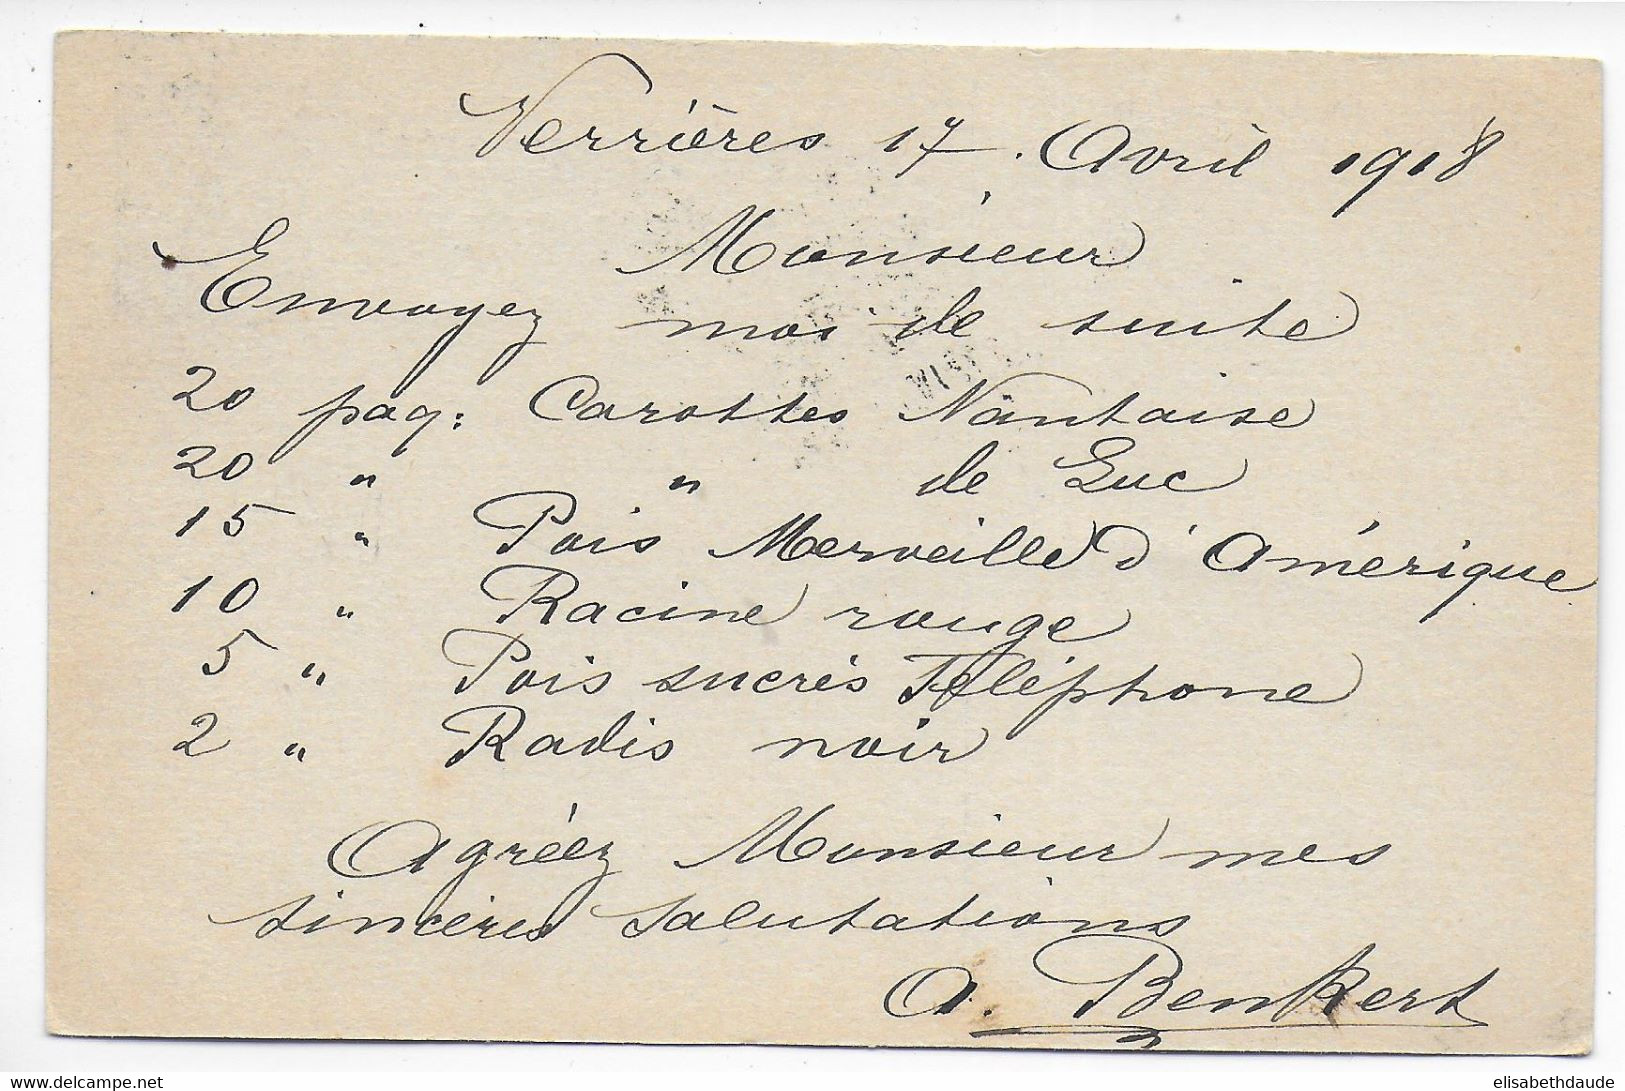 Verrières 17. Avril 1918
Monsieur
Envoyez moi de suite
20 paq: Carottes Nantaise
20 " " de Luc
15 " Pois Merveille d'Amérique
10 " Racine rouge
5 " Pois sucrés Téléphone
2 " Radis noir
Agréez Monsieur mes
sincères salutations
A. Benkert
elisabethdaude